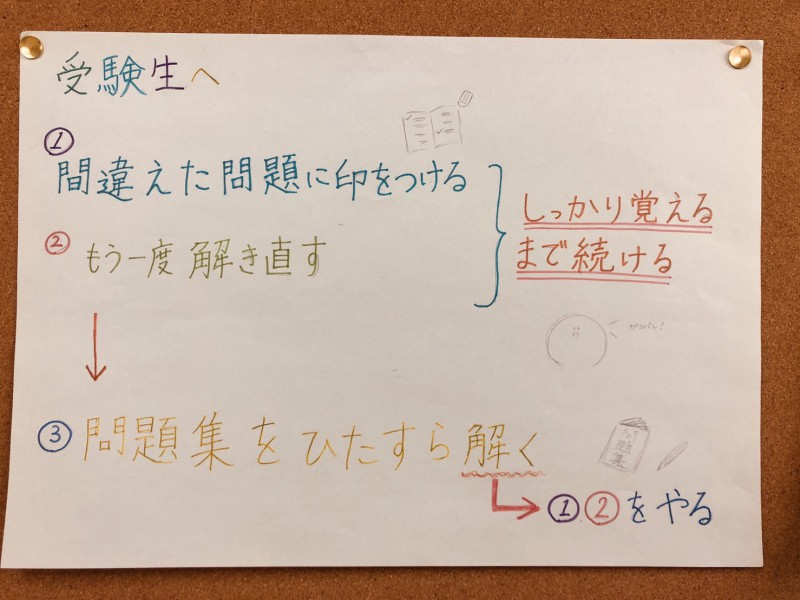 受験生へ
①
間違えた問題に印をつける
② もう一度解き直す
しっかり覚える
まで続ける
③ 問題集をひたすら解く
問題集
①②をやる